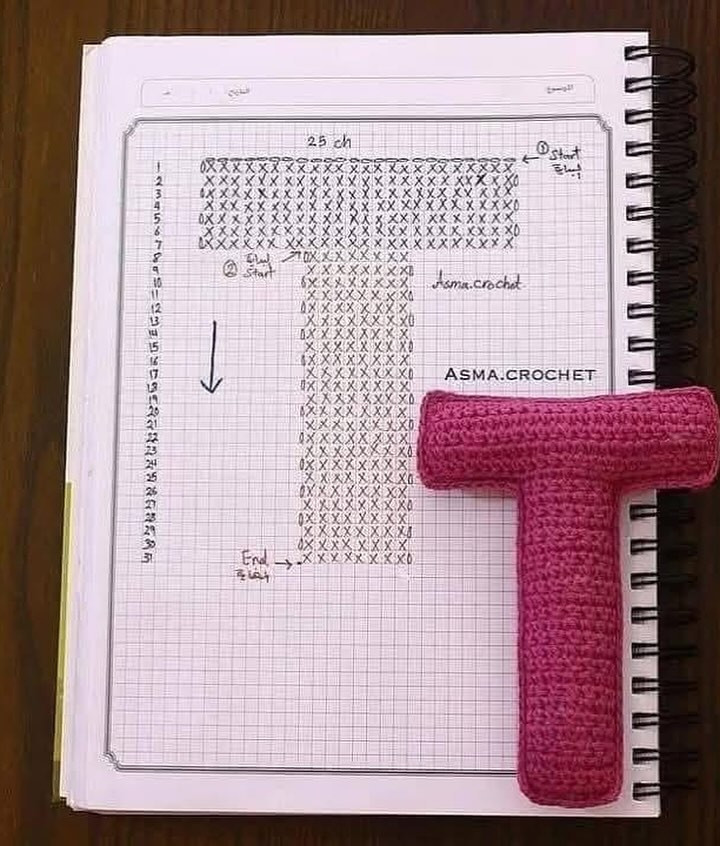 الموضوع
التاريخ
25 ch
① Start
1
2
3
4
5
6
7
② Start
8
9
10
Asma.crochet
11
12
13
14
15
16
17
ASMA.CROCHET
18
19
20
21
22
23
24
25
26
27
28
29
30
31
End